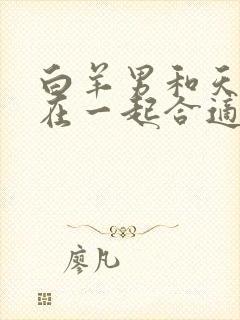 白羊男和天
在一起合适
廖凡